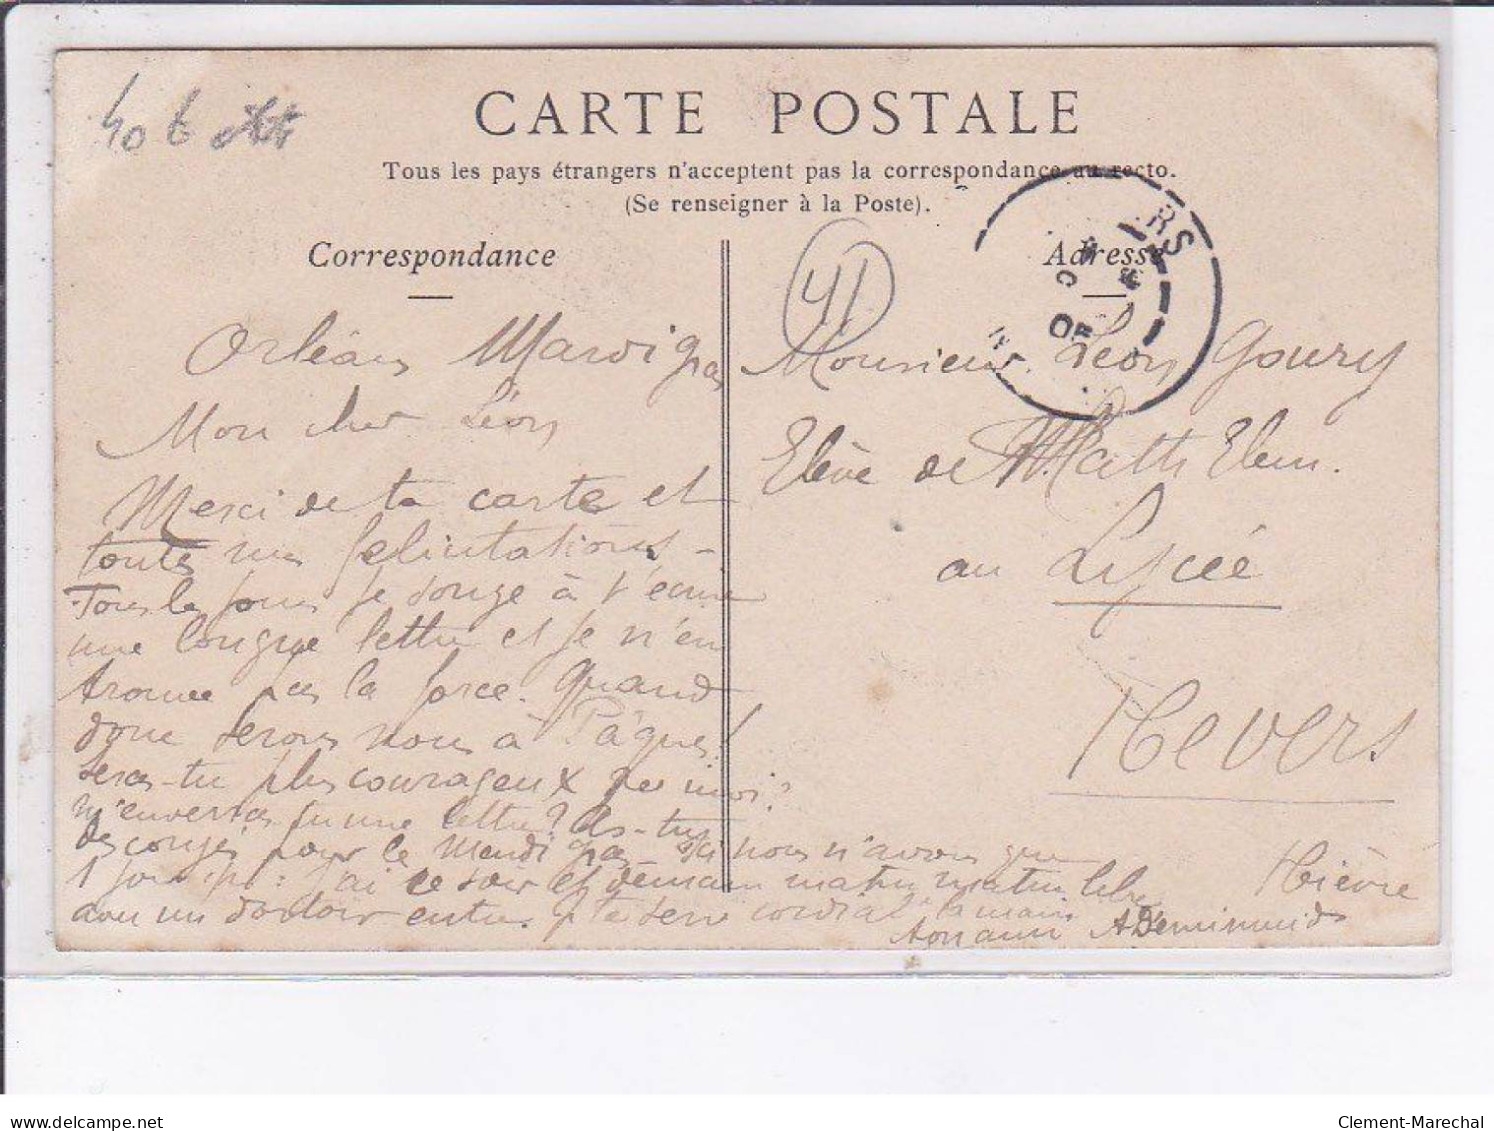 40 6
CARTE POSTALE
Tous les pays étrangers n'acceptent pas la correspondance au recto.
(Se renseigner à la Poste).
Correspondance
Adresse
41
RS
Orléans Mardi gras
Mon cher Léon
Merci de ta carte et
toutes mes félicitations -
Tous les jours je songe à t'écrire
une longue lettre et je n'en
trouve pas la force. Quand
donc serons nous à Pâques!
Seras-tu plus courageux que moi?
m'enverras-tu une lettre? As-tu
des congés pour le Mardi gras - ici nous n'avons que
1 jour : j'ai ce soir et demain matin libre
avec un dortoir entre. Je te serre cordialt la main
Ton ami
Monsieur Léon Goury
Elève de Math Elem.
au Lycée
Nevers
Nièvre
delcampe.net
Clement-Marechal